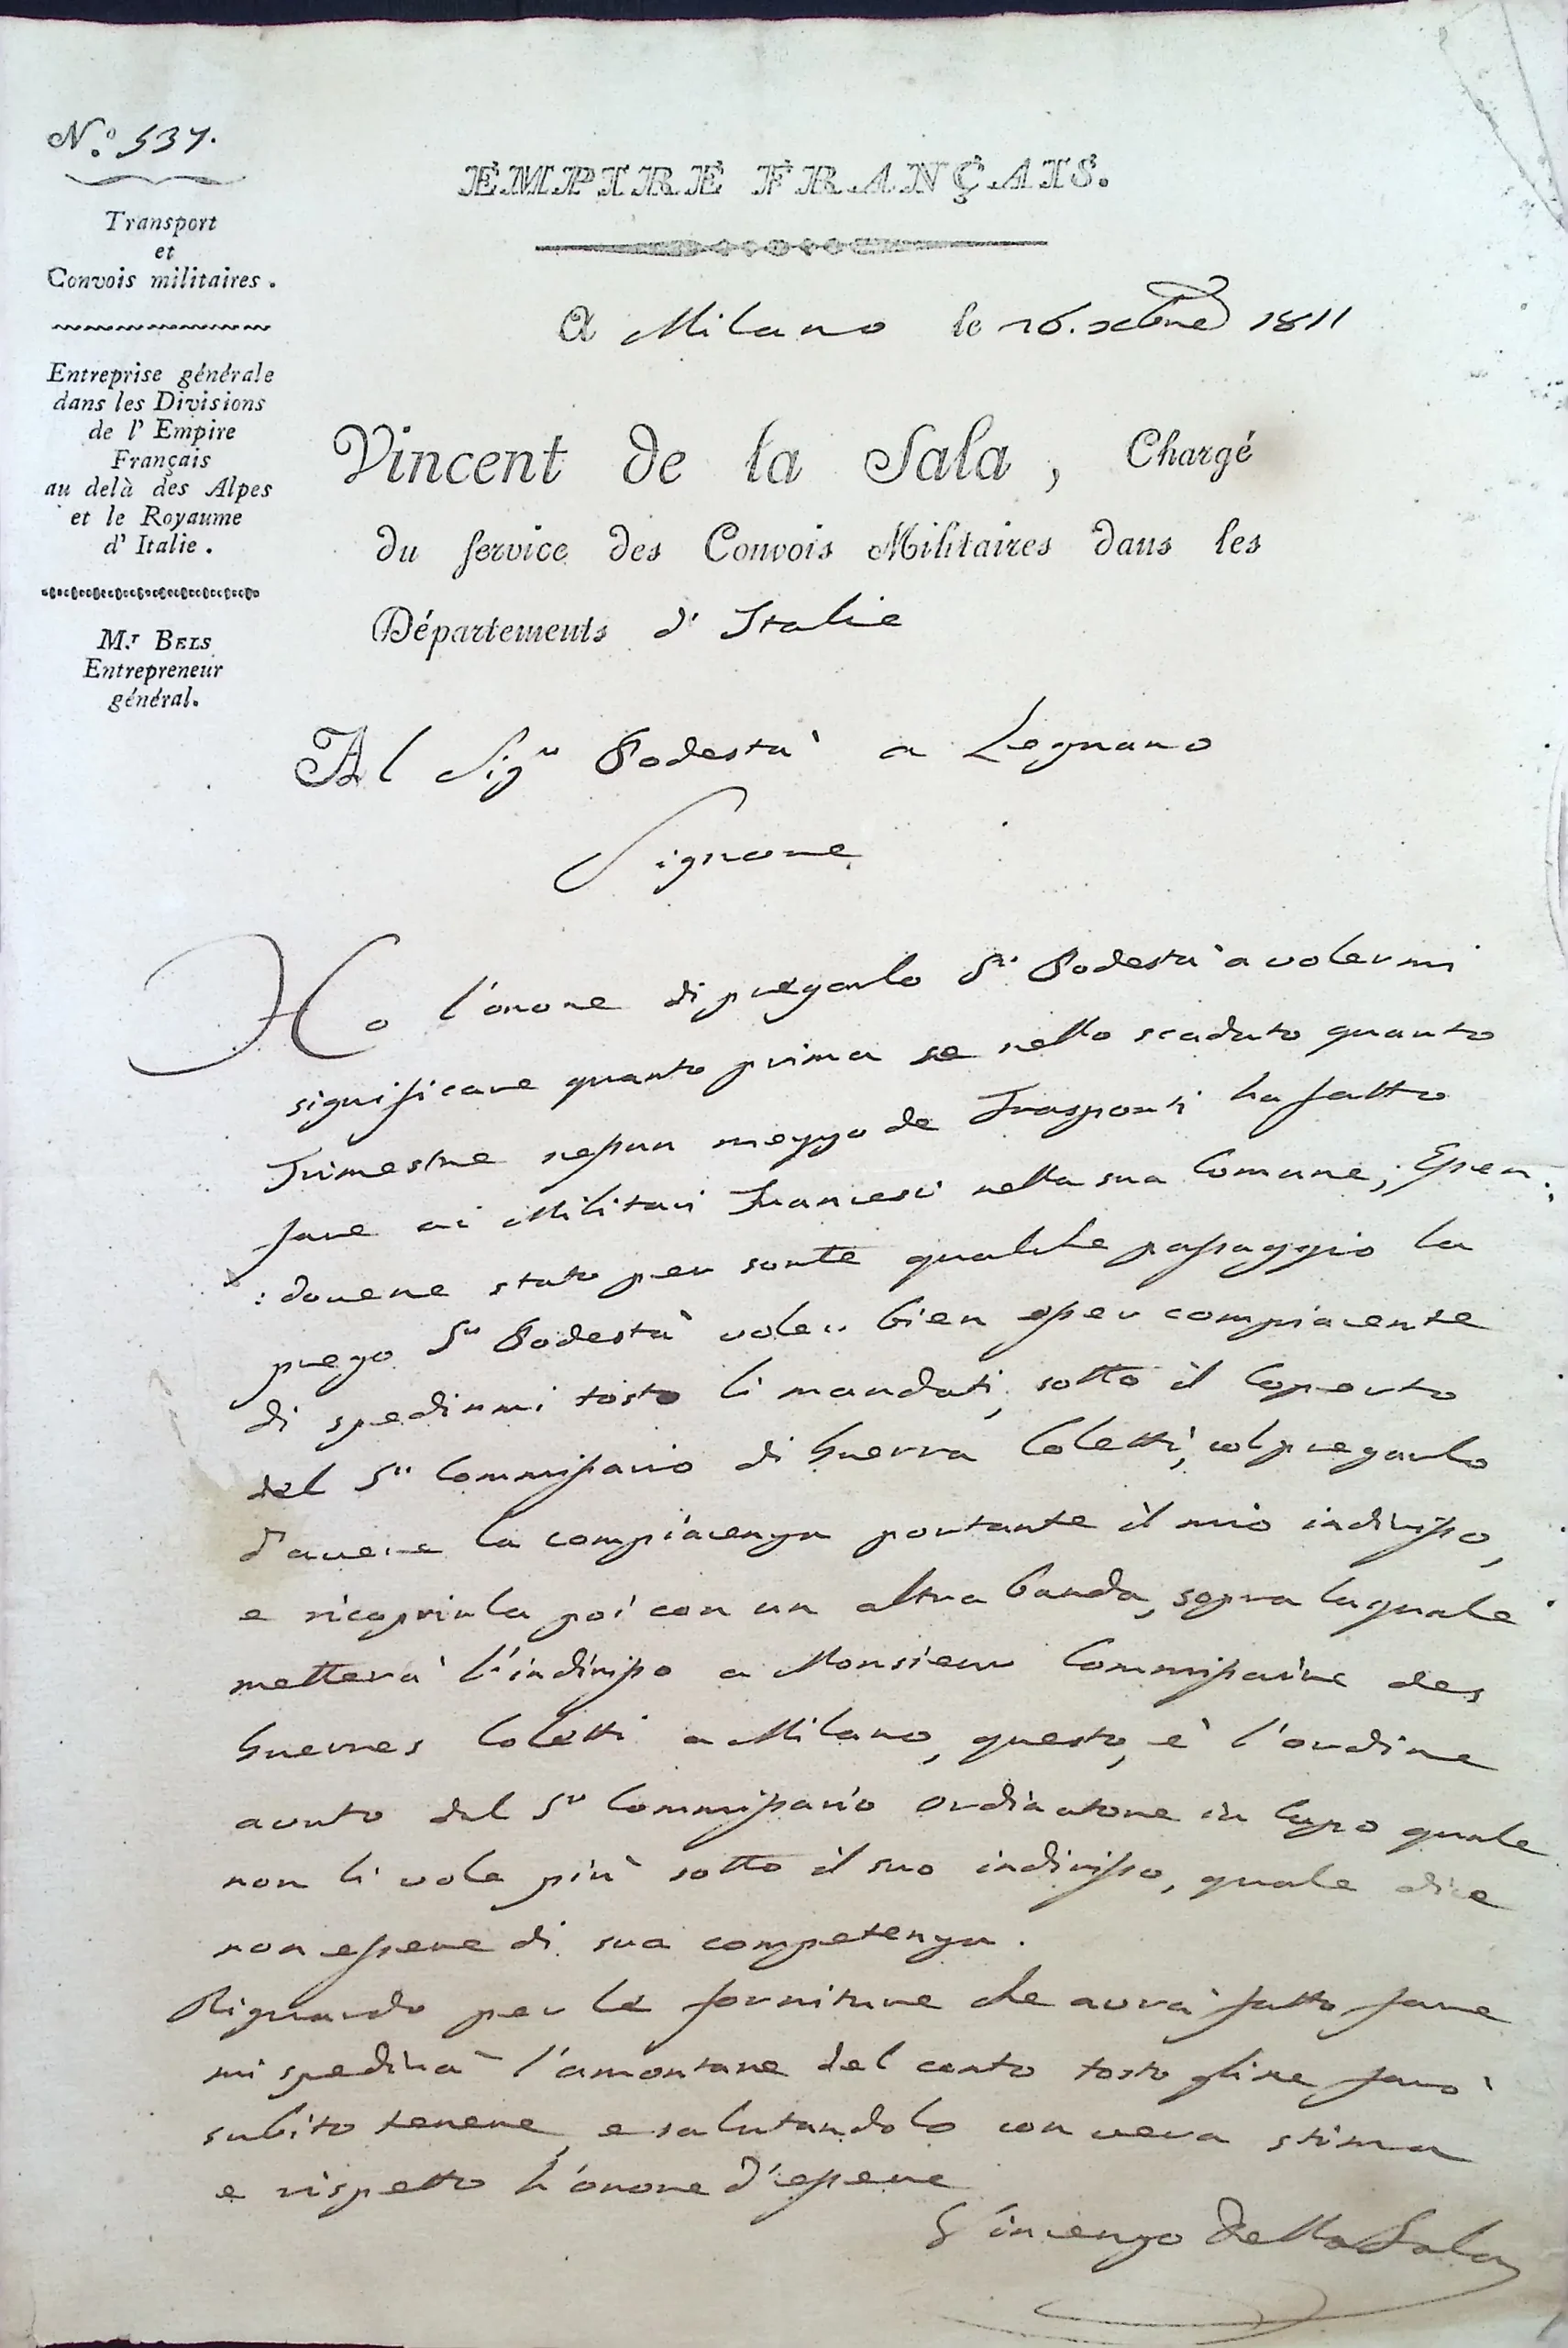 N.º 537.
Transport
et
Convois militaires.
Entreprise générale
dans les Divisions
de l' Empire
Français
au delà des Alpes
et le Royaume
d' Italie.
M.r BELS
Entrepreneur
général.
EMPIRE FRANÇAIS.
A Milano le 16. 1811
Vincent de la Sala, Chargé
du service des Convois Militaires dans les
Départements d' Italie
Al Sigr Podestà a Legnano
Signore
Ho l'onore di pregarlo Sr Podestà a volermi
significare quanto prima se nello scaduto quarto
Trimestre nessun mezzo de Trasporti ha fatto
fare ai Militari Francesi nella sua Comune; Essen:
:dovene stato per sorte qualche passaggio la
prego Sr Podestà voler bien esser compiacente
di spedirmi tosto li mandati, sotto il Coperto
del Sr Commissario di Guerra Coletti, col pregarlo
d'avere la compiacenza portante il mio indirisso,
e ricoprirla poi con un altra banda, sopra la quale
metterà l'indirisso a Monsieur Commissaire des
Guerres Coletti a Milano, questo, è l'ordine
avuto dal Sr Commissario Ordinatore in Capo quale
non li vole più sotto il suo indirisso, quale dice
non essere di sua competenza.
Riguardo per le forniture che avrà fatto fare
mi spedirà l'amontare del conto tosto gline farò
subito tenere, e salutandolo con vera stima
e rispetto l'onore d'essere
Vincenzo Della Sala